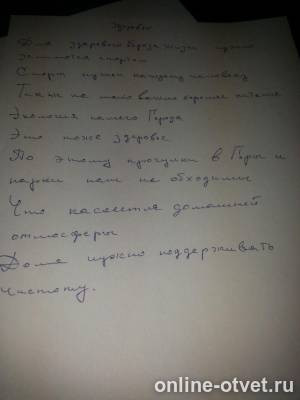 Здоровье
Для здоровый образа жизни нужно
заниматся спортом
Спорт нужен каждому человеку
Так же не мало важно хорошее питание
Экология нашего Города
Это тоже здоровье
По этому прогулки в Горы и
парки нам не обходимы
Что касается домашней
атмосферы
Дома нужно поддерживать
чистоту.
online-otvet.ru